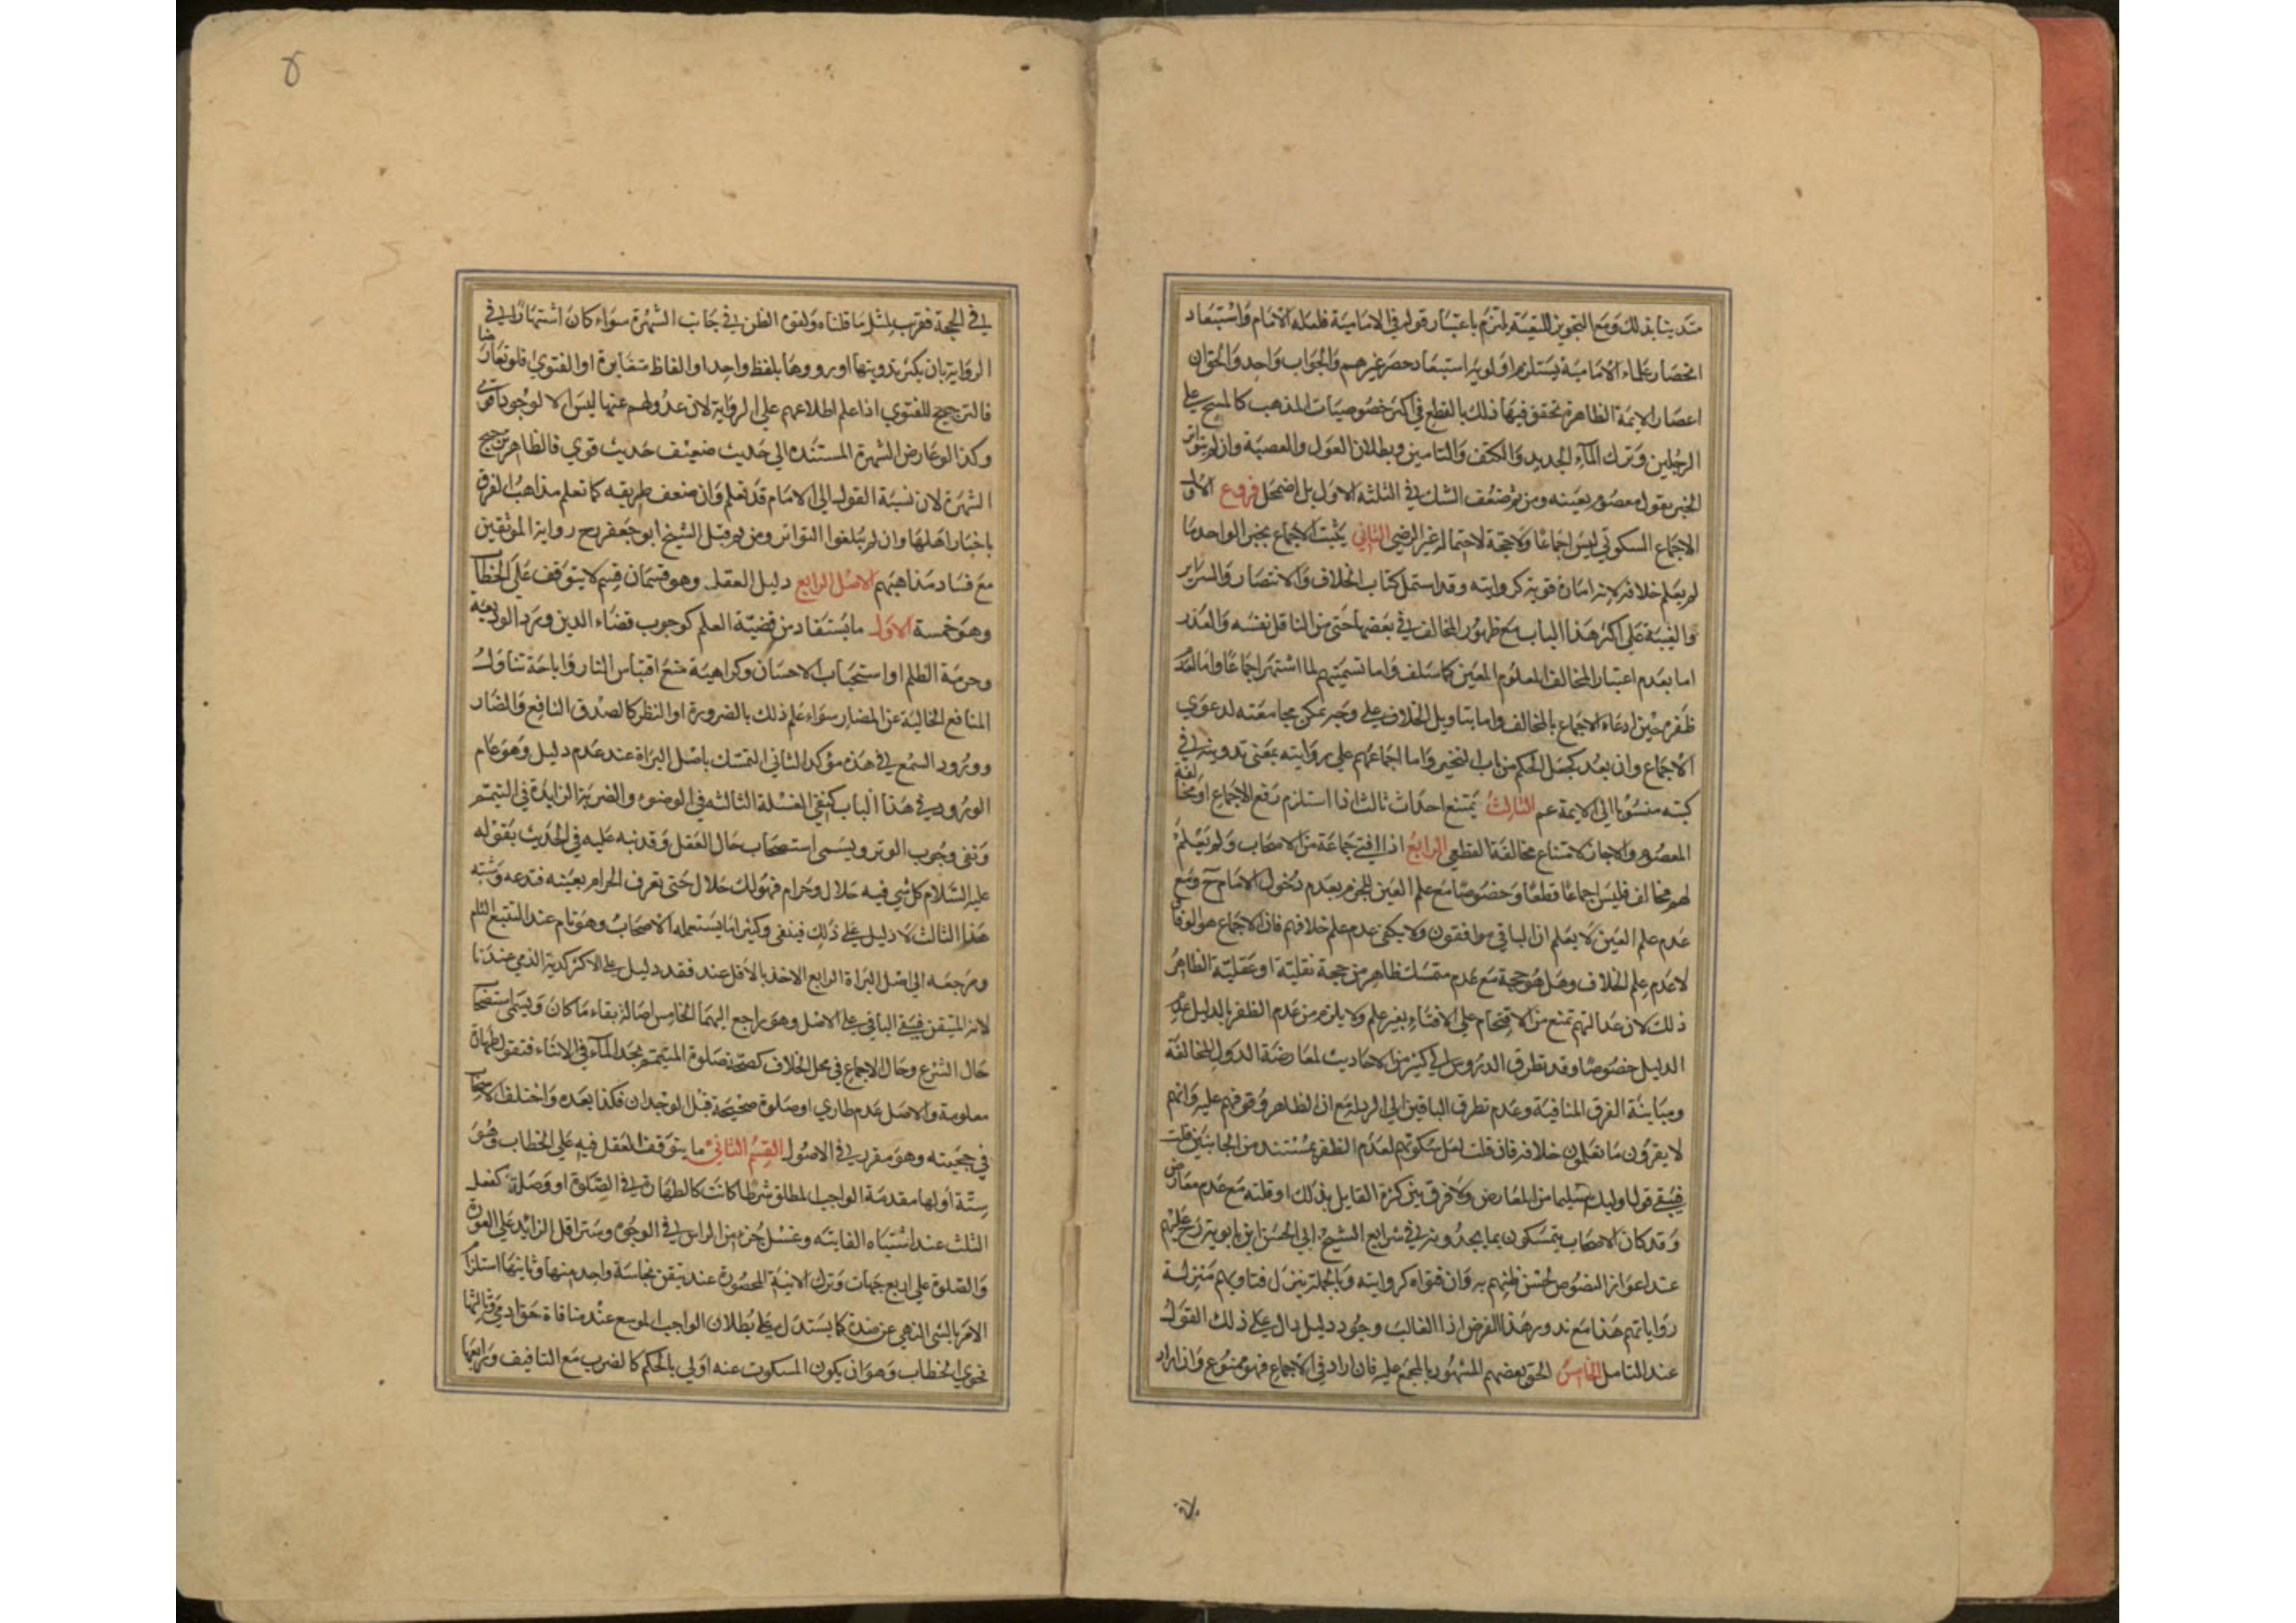 متدينا بذلك ومع التجويز للتقية يلتزم باعتبار قوله في الامامية فلعله الامام واستبعاد
انحصار علماء الامامية يستلزم اولوية استبعاد حصر غيرهم والجواب واحد والحق ان
اعصار الايمة الظاهرة تحقق فيها ذلك بالقطع في اكثر خصوصيات المذهب كالمسح على
الرجلين وترك الماء الجديد والكتف والتامين وبطلان العول والعصبة وان لم يتواتر
الخبر بقول معصوم بعينه ومن ثم ضعف الشك في الثلثة الاول بل اضمحل فروع الاول
الاجماع السكوتي ليس اجماعا ولا حجة لاحتماله غير الرضى الثاني يثبت الاجماع بخبر الواحد ما
لم يعلم خلافه لانه امارة قوية كروايته وقد اشتمل كتاب الخلاف والانتصار والسراير
والغنية على اكثر هذا الباب مع ظهور المخالف في بعضها حتى من الناقل نفسه والعذر
اما بعدم اعتبار المخالف المعلوم المعين كما سلف واما تسميتهم لما اشتهر اجماعا واما لعدم
ظفره حين ادعاء الاجماع بالمخالف واما بتاويل الخلاف على وجه يمكن مجامعته لدعوي
الاجماع وان بعد كجعل الحكم من باب التخيير واما اجماعهم على روايته بمعنى تدوينه في
كتبه منسوبا الى الايمة عم الثالث يمتنع احداث ثالث اذا استلزم رفع الاجماع او مخالفة
المعصوم والا جاز لامتناع مخالفة القطعي الرابع اذا افتى جماعة من الاصحاب ولم يعلم
لهم مخالف فليس اجماعا قطعا وخصوصا مع علم العين للجزم بعدم دخول الامام ح ومع
عدم علم العين لا يعلم ان الباقي موافقون ولا يكفي عدم علم خلافهم فان الاجماع هو الوفاق
لا عدم علم الخلاف وهل هو حجة مع عدم متمسك ظاهر من حجة نقلية او عقلية الظاهر
ذلك لان عدالتهم تمنع من الاقتحام على الافتاء بغير علم ولا يلزم من عدم الظفر بالدليل عدم
الدليل خصوصا وقد تطرق الدروس الى كثير من الاحاديث لمعارضة الدول المخالفة
ومباينة الفرق المنافية وعدم تطرق الباقين الى الرد له مع ان الظاهر وقوفهم عليه وانهم
لا يقرون ما يعلمون خلافه فان قلت لعل سكوتهم لعدم الظفر بمستند من الجانبين قلت
فيبقى قول اوليك سليما من المعارض ولا فرق بين كثرة القايل بذلك او قلته مع عدم معارض
وقد كان الاصحاب يتمسكون بما يجدونه في شرايع الشيخ ابي الحسن ابن بابويه رح عليهم
عند اعواز النصوص لحسن ظنهم به وان فتواه كروايته وبالجملة تنزل فتاويهم منزلة
رواياتهم هذا مع ندور هذا الفرض اذ الغالب وجود دليل دال على ذلك القول
عند التامل الخامس الحق بعضهم المشهور بالمجمع عليه فان اراد في الاجماع فهو ممنوع وان اراد
في الحجة فقريب لمثل ما قلناه ولقوة الظن في جانب الشهرة سواء كان اشتهارا في
الرواية بان يكثر تدوينها او رووها بلفظ واحد او الفاظ متغايرة او الفتوى فلو تعارضا
فالترجيح للفتوي اذا علم اطلاعهم على الرواية لان عدولهم عنها ليس الا لوجود اقوى
وكذا لو عارض الشهرة المستندة الى حديث ضعيف حديث قوي فالظاهر ترجيح
الشهرة لان نسبة القول الى الامام قد تعلم وان ضعف طريقه كما تعلم مذاهب الفرق
باخبار اهلها وان لم يبلغوا التواتر ومن ثم قبل الشيخ ابو جعفر رح رواية الموثقين
مع فساد مذاهبهم الاصل الرابع دليل العقل وهو قسمان قسم لا يتوقف على الخطاب
وهو خمسة الاول ما يستفاد من قضية العلم كوجوب قضاء الدين ورد الوديعة
وحرمة الظلم او استحباب الاحسان وكراهية منع اقتباس النار واباحة تناول
المنافع الخالية عن المضار سواء علم ذلك بالضرورة او النظر كالصدق النافع والضار
وورود السمع في هذه مؤكد الثاني التمسك باصل البراة عند عدم دليل وهو عام
الورود في هذا الباب كنفي الغسلة الثالثه في الوضوء والضربة الزايدة في التيمم
ونفى وجوب الوتر ويسمى استصحاب حال العقل وقد نبه عليه في الحديث بقوله
عليه السلام كل شي فيه حلال وحرام فهو لك حلال حتى تعرف الحرام بعينه فتدعه وشبه
هذا الثالث لا دليل على ذلك فينفى وكثيرا ما يستعمله الاصحاب وهو تام عند التتبع التام
ومرجعه الى اصل البراة الرابع الاخذ بالاقل عند فقد دليل على الاكثر كدية الذمي عندنا
لانه المتيقن فيبقى الباقي على الاصل وهو راجع اليهما الخامس اصالة بقاء ما كان ويسمى استصحاب
حال الشرع وحال الاجماع في محل الخلاف كصحة صلوة المتيمم يجد الماء في الاثناء فتقول طهارة
معلومة والاصل عدم طاري او صلوة صحيحة قبل الوجدان فكذا بعده واختلف الاصحاب
في حجيته وهو مقرر في الاصول القسم الثاني ما يتوقف العقل فيه على الخطاب وهو
ستة اولها مقدمة الواجب المطلق شرطا كانت كالطهارة في الصلوة او وصلة كفعل
الثلث عند اشتباه الفايتة وغسل جزء من الراس في الوجه وستر اقل الزائد على العورة
والصلوة على اربع جهات وترك الانية المحصورة عند تيقن نجاسة واحد منها وثانيها استلزام
الامر بالشي النهي عن ضده كما يستدل على بطلان الواجب الموسع عند منافاة حق ادمي وثالثها
فحوي الخطاب وهو ان يكون المسكوت عنه اولي بالحكم كالضرب مع التافيف ورابعها